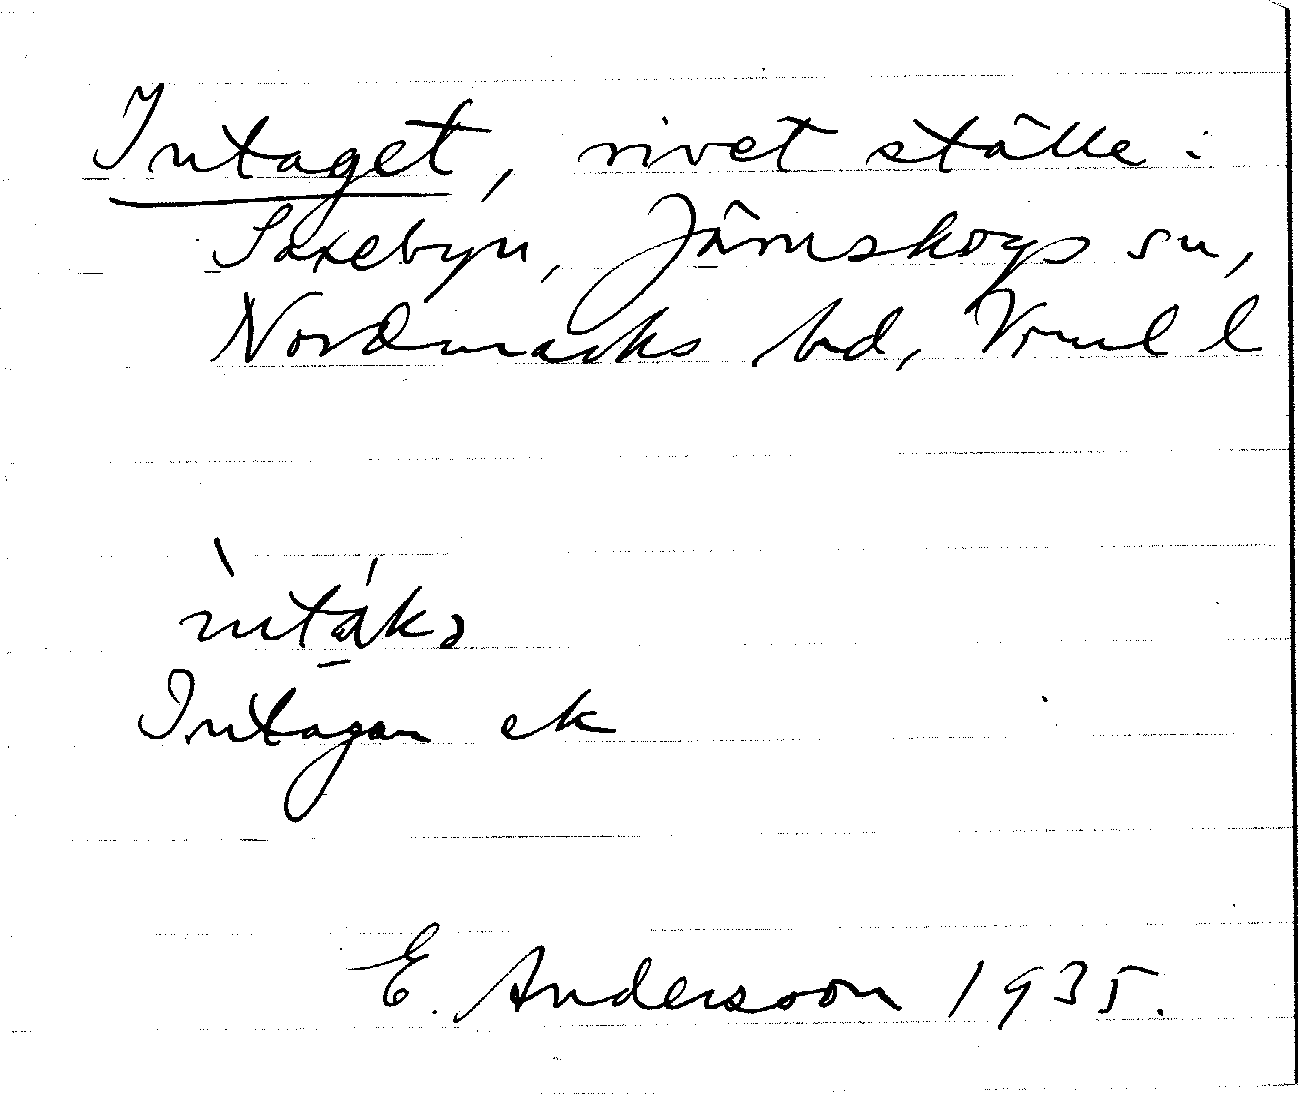 Intaget, rivet ställe i
Saxebyn, Järnskogs sn,
Nordmarks hd, Vrml l
ìntákə
Intagan ek
E. Andersson 1935.